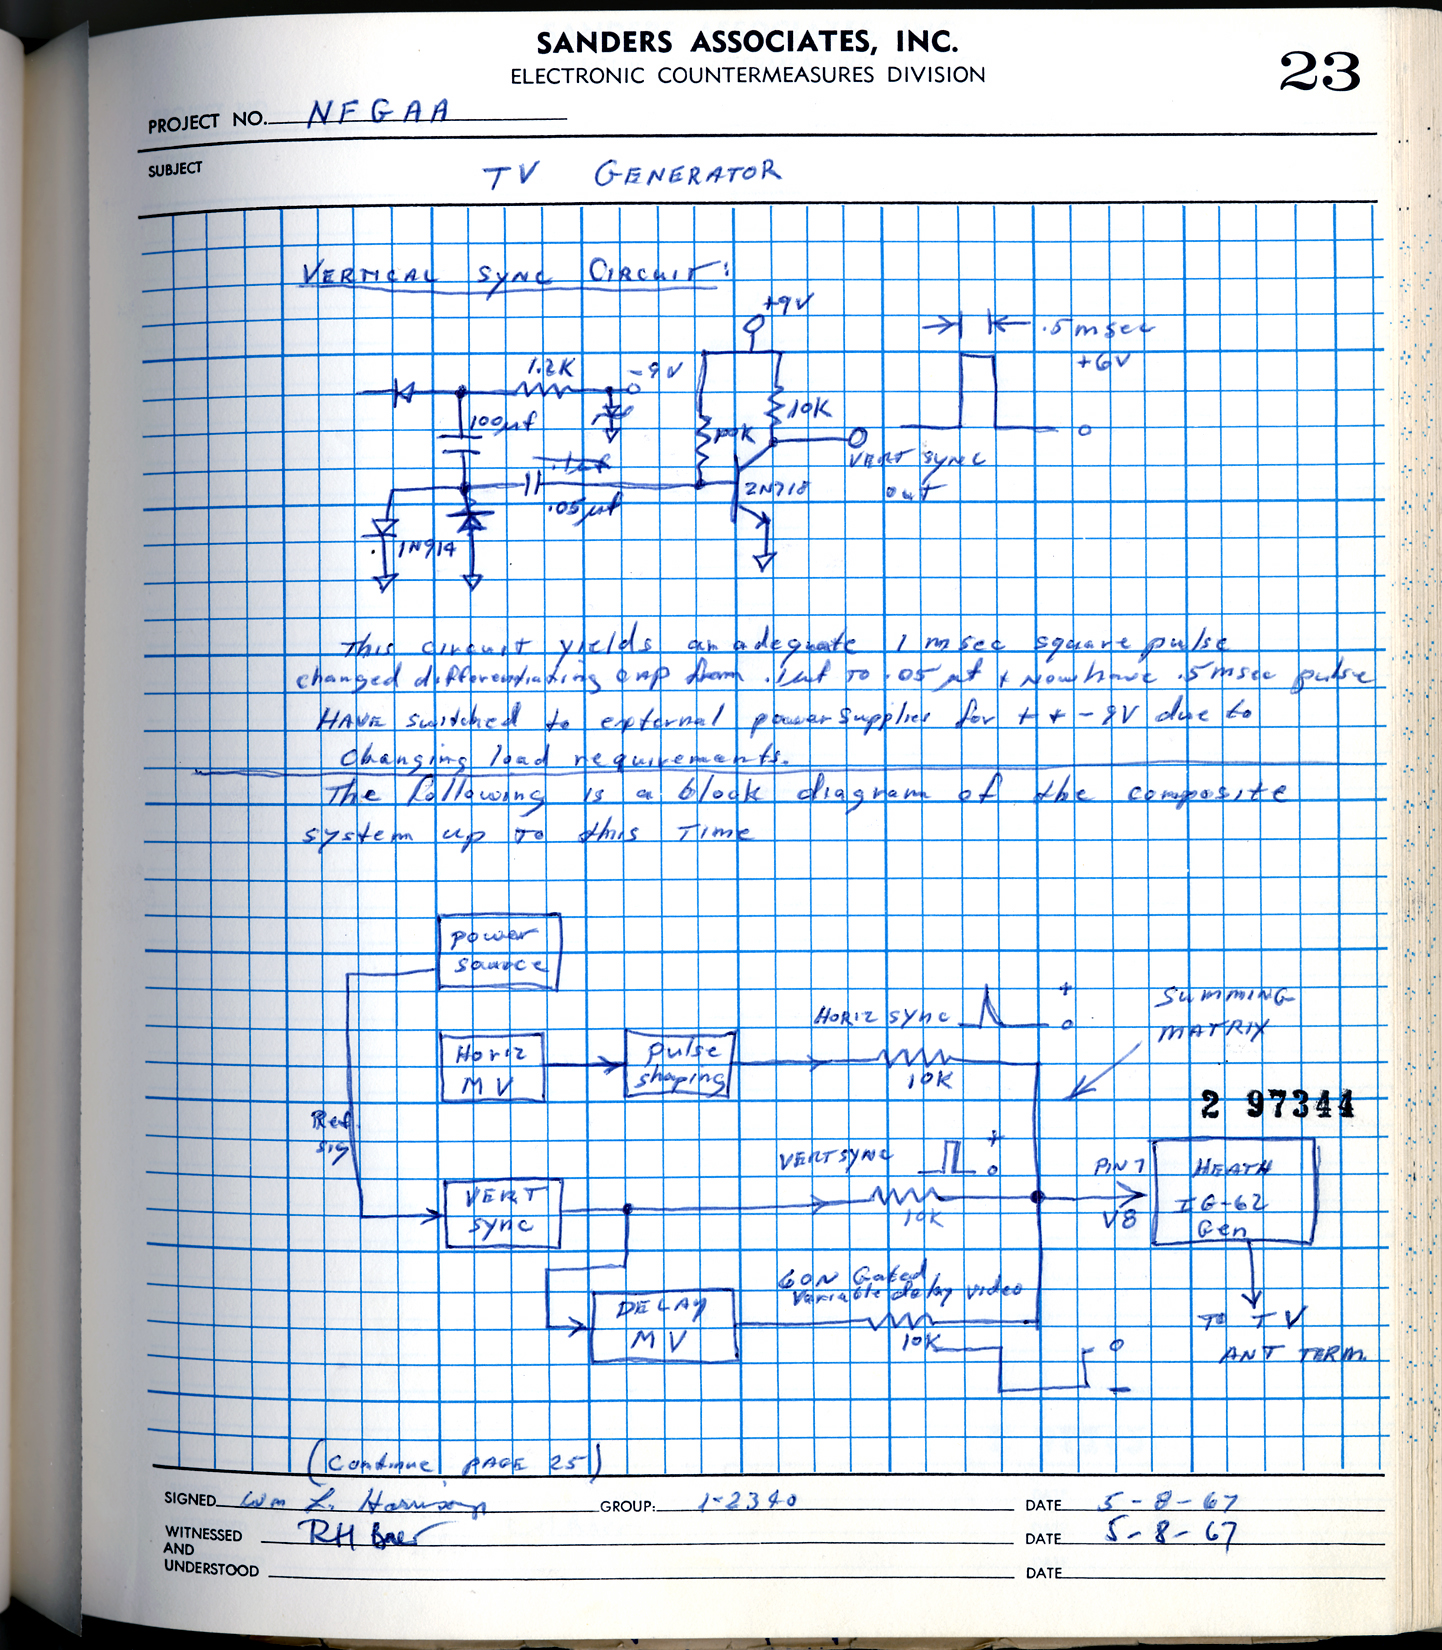 SANDERS ASSOCIATES, INC.
ELECTRONIC COUNTERMEASURES DIVISION
23
PROJECT NO. NFGAA
SUBJECT
TV GENERATOR
VERTICAL SYNC CIRCUIT:
+9V
.5 msec
+6V
1.2K
-9V
100µf
10K
100K
0
VERT SYNC
out
.1µf
.05µf
2N718
1N914
This circuit yields an adequate 1 msec square pulse
changed differentiating cap from .1µf to .05µf + now have .5 msec pulse
HAVE switched to external power supplies for + + - 9V due to
changing load requirements.
The following is a block diagram of the composite
system up to this Time
power
source
HORIZ SYNC
+
0
SUMMING
MATRIX
Horiz
MV
pulse
shaping
10K
2 97344
Ref
sig
VERT SYNC
+
0
PIN 7
V8
HEATH
IG-62
Gen
VERT
sync
10K
60N Gated
Variable delay video
DELAY
MV
10K
0
-
To TV
ANT TERM.
(Continue PAGE 25)
SIGNED Wm L. Harrison GROUP: 1-2340 DATE 5-8-67
WITNESSED
AND
UNDERSTOOD
RH Baer DATE 5-8-67
DATE